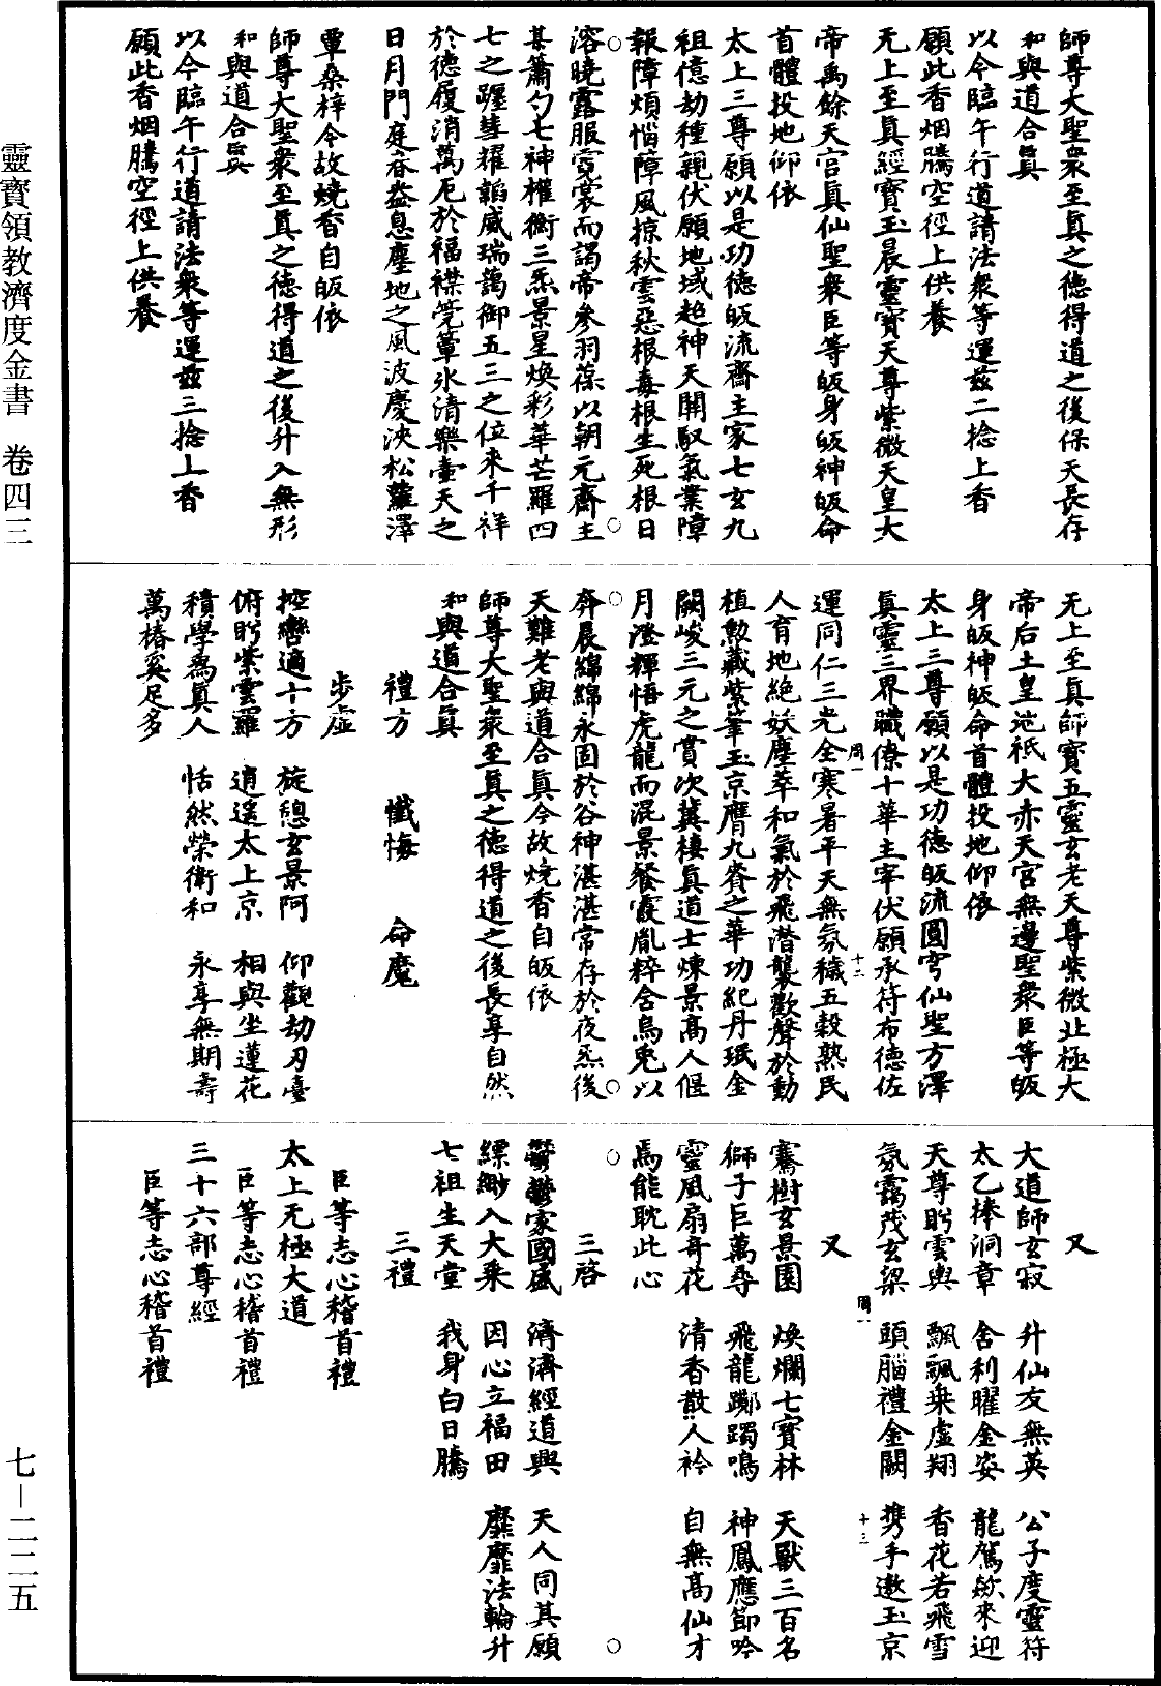 師尊大聖衆至真之德得道之後保天長存
和與道合真
以今臨午行道請法衆等運茲二捻上香
願此香烟騰空徑上供養
无上至真經寶玉晨靈寶天尊紫微天皇大
帝禹餘天宮真仙聖衆臣等皈身皈神皈命
首體投地仰依
太上三尊願以是功德皈流齋主家七玄九
祖億劫種親伏願地域超神天關馭氣業障
報障煩惱障風掠秋雲惡根毒根生死根日
溶曉露服霓裳而謁帝參羽葆以朝元齋主
某簫勺七神權衡三炁景星煥彩華芒羅四
七之躔彗耀韜威瑞藹御五三之位來千祥
於德履消萬厄於福襟筦簟氷清樂壷天之
日月門庭春盎息塵地之風波慶泱松蘿澤
覃桑梓今故燒香自皈依
師尊大聖衆至真之德得道之後升入無形
和與道合真
以今臨午行道請法衆等運茲三捻上香
願此香烟騰空徑上供養
无上至真師寶五靈玄老天尊紫微北極大
帝后土皇地祇大赤天宮無邊聖衆臣等皈
身皈神皈命首體投地仰依
太上三尊願以是功德皈流圓穹仙聖方澤
真靈三界職僚十華主宰伏願承符布德佐
運同仁三光全寒暑平天無氛穢五穀熟民
人育地絶妖塵萃和氣於飛潛襲歡聲於動
植勲藏紫筆玉京膺九賚之華功紀丹珉金
闕峻三元之賞次冀棲真道士煉景高人偃
月澄輝悟虎龍而混景餐霞胤粹含烏兔以
奔晨綿綿永固於谷神湛湛常存於夜炁後
天難老與道合真今故燒香自皈依
師尊大聖衆至真之德得道之後長享自然
和與道合真
禮方　懺悔　命魔
步虛
控轡適十方　旋憩玄景阿　仰觀劫刃臺
俯眄紫雲羅　逍遥太上京　相與坐蓮花
積學爲真人　恬然榮衛和　永享無期壽
萬椿奚足多
又
大道師玄寂　升仙友無英　公子度靈符
太乙棒洞章　舍利曜金姿　龍駕欻來迎
天尊眄雲輿　飄飄乘虛翔　香花若飛雪
氛靄茂玄梁　頭腦禮金闕　携手遨玉京
又
騫樹玄景園　煥爛七寶林　天獸三百名
獅子巨萬尋　飛龍躑躅鳴　神鳳應節吟
靈風扇奇花　清香散人衿　自無高仙才
焉能耽此心
三啓
鬱鬱家國盛　濟濟經道興　天人同其願
縹緲入大乘　因心立福田　靡靡法輪升
七祖生天堂　我身白日騰
三禮
臣等志心稽首禮
太上无極大道
臣等志心稽首禮
三十六部尊經
臣等志心稽首禮
周一
十二
周一
十三
靈寶領教濟度金書　卷四三
七—二二五